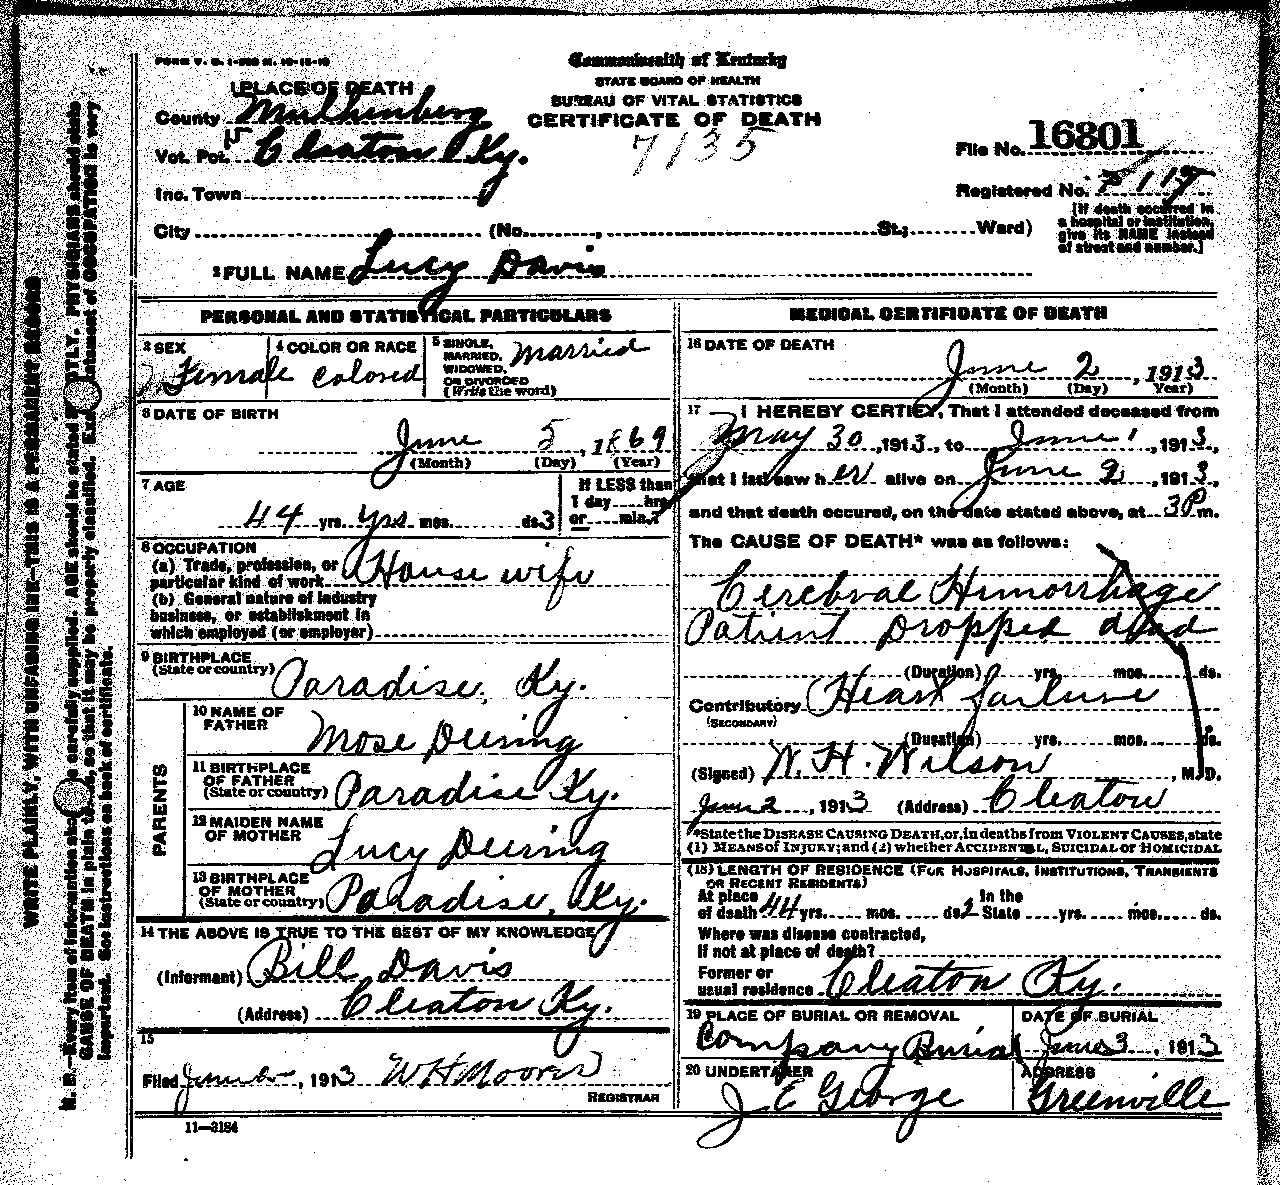 Commonwealth of Kentucky
STATE BOARD OF HEALTH
BUREAU OF VITAL STATISTICS
CERTIFICATE OF DEATH
7135
1 PLACE OF DEATH
County Muhlenberg
Vot. Pct. 15 Cleaton Ky.
Inc. Town
City (No. , St.; Ward)
File No. 16801
Registered No.
[If death occurred in
a hospital or institution
give its NAME instead
of street and number.]
2 FULL NAME Lucy Davis
PERSONAL AND STATISTICAL PARTICULARS
3 SEX Female
4 COLOR OR RACE colored
5 SINGLE,
MARRIED,
WIDOWED,
OR DIVORCED
(Write the word) Married
6 DATE OF BIRTH
June 5, 1869
(Month) (Day) (Year)
7 AGE
44 yrs. yrs mos. ds. 3
If LESS than
1 day hrs.
or min.?
8 OCCUPATION
(a) Trade, profession, or
particular kind of work House wife
(b) General nature of industry
business, or establishment in
which employed (or employer)
9 BIRTHPLACE
(State or country) Paradise, Ky.
PARENTS
10 NAME OF
FATHER Mose Deering
11 BIRTHPLACE
OF FATHER
(State or country) Paradise Ky.
12 MAIDEN NAME
OF MOTHER Lucy Deering
13 BIRTHPLACE
OF MOTHER
(State or country) Paradise, Ky.
14 THE ABOVE IS TRUE TO THE BEST OF MY KNOWLEDGE
(Informant) Bill Davis
(Address) Cleaton Ky.
15
Filed , 1913 W H Moore
REGISTRAR
11—3184
MEDICAL CERTIFICATE OF DEATH
16 DATE OF DEATH
June 2, 1913
(Month) (Day) Year)
17 I HEREBY CERTIFY, That I attended deceased from
May 30, 1913, to June 1, 1913,
that I last saw her alive on June 2, 1913,
and that death occured, on the date stated above, at 3 P m.
The CAUSE OF DEATH* was as follows:
Cerebral Hemorrhage
Patient Dropped dead
(Duration) yrs. mos. ds.
Contributory Heart failure
(SECONDARY)
(Duration) yrs. mos. ds.
(Signed) W. H. Wilson, M.D.
June 2, 1913 (Address) Cleaton
*State the DISEASE CAUSING DEATH, or, in deaths from VIOLENT CAUSES, state
(1) MEANS of INJURY; and (2) whether ACCIDENTAL, SUICIDAL or HOMICIDAL
(18) LENGTH OF RESIDENCE (FOR HOSPITALS, INSTITUTIONS, TRANSIENTS
OR RECENT RESIDENTS)
At place In the
of death 44 yrs. mos. ds. 2 State yrs. mos. ds.
Where was disease contracted,
if not at place of death?
Former or
usual residence Cleaton Ky.
19 PLACE OF BURIAL OR REMOVAL DATE OF BURIAL
Company Burial June 3, 1913
20 UNDERTAKER ADDRESS
J. E George Greenville
WRITE PLAINLY, WITH UNFADING INK—THIS IS A PERMANENT RECORD
N. B.—Every item of information should be carefully supplied. AGE should be stated EXACTLY. PHYSICIANS should state
CAUSE OF DEATH in plain terms, so that it may be properly classified. Exact statement of OCCUPATION is very
important. See instructions on back of certificate.